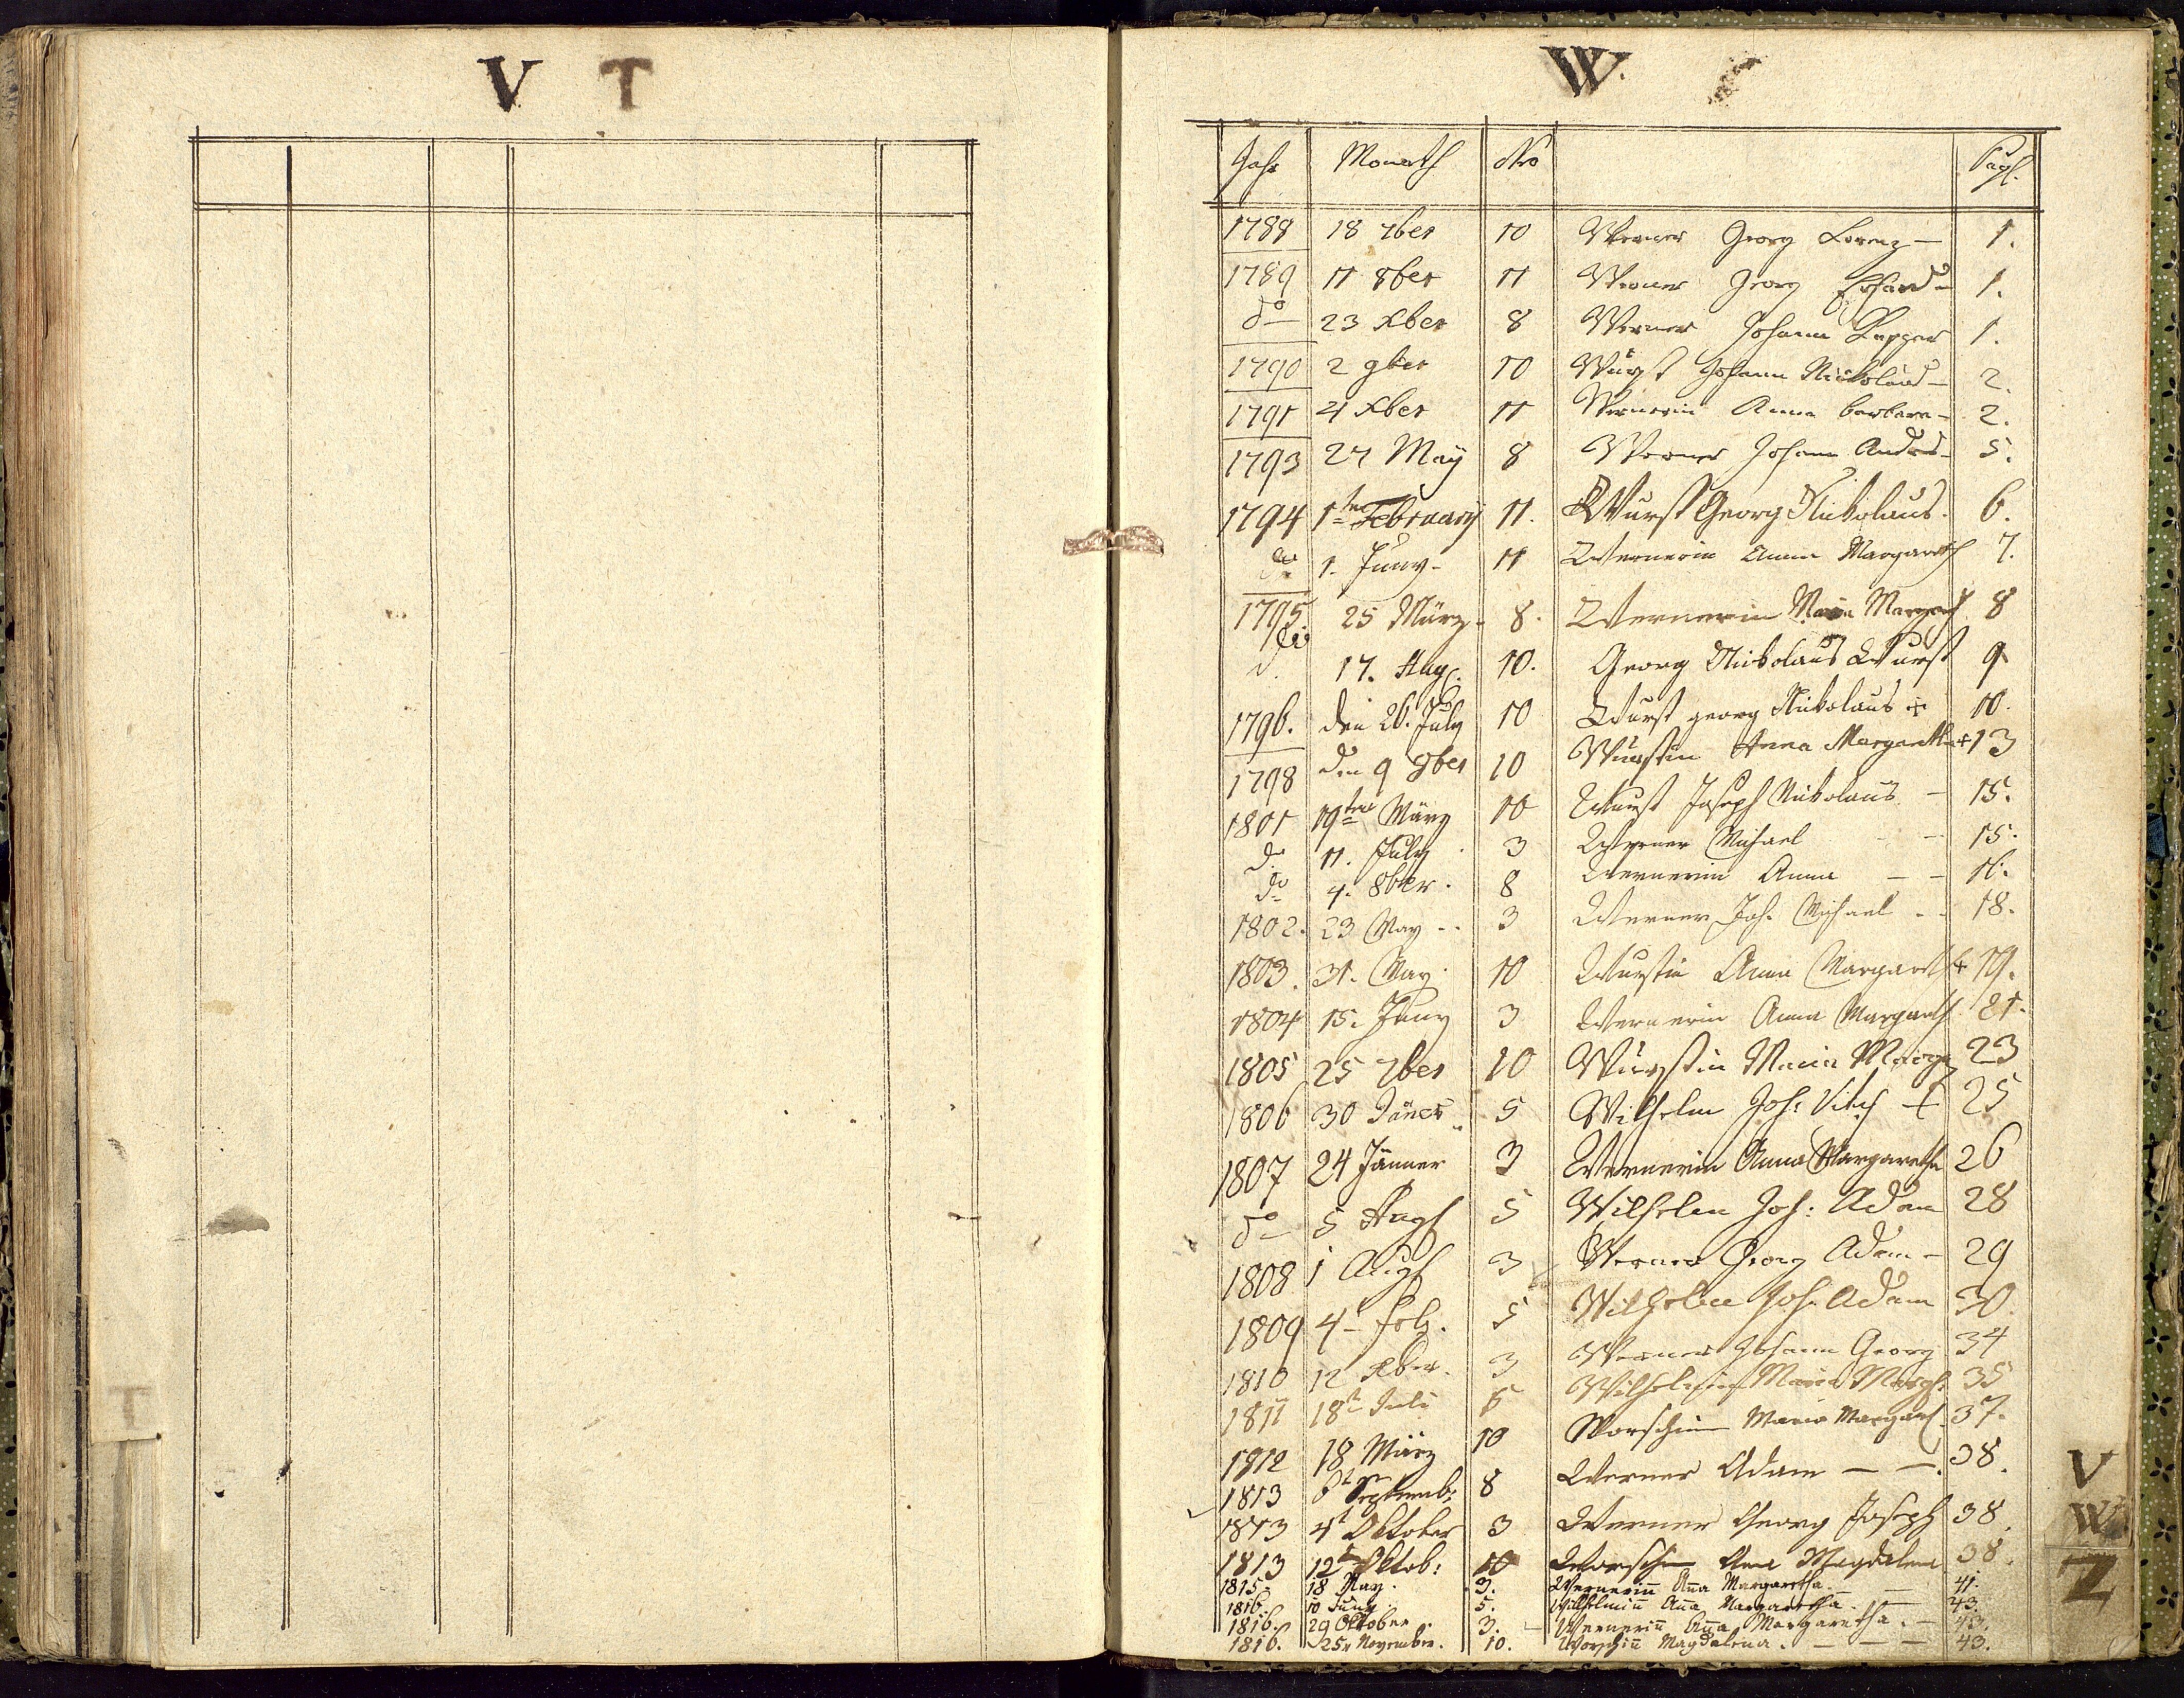 V T
W.
Jahr Monath Nro Pagl.
1788 18 7ber 10 Werner Georg Lorenz — 1.
1789 11 8ber 11 Werner Georg Erhard — 1.
do 23 Xber 8 Werner Johann 1.
1790 2 9ber 10 Wurst Johann Nickolaus — 2.
1791 4 Xber 11 Wernerin Anna barbara — 2.
1793 27 May 8 Werner Johann Andres — 5.
1794 1ten February 11. Wurst Georg Nickolaus. 6.
do 1. Juny — 11 Wernerin Anna Margareth 7.
1795. 25 März. 8. Wernerin Maria Margareth 8
do 17. Aug. 10. Georg Nickolaus Wurst 9
1796. den 26. July 10 Wurst georg Nickolaus + 10.
1798 den 9 9ber 10 Wurstin Anna Margaretha + 13
1801 19ten März 10 Wurst Joseph Nickolaus — 15.
do 11. July 3 Werner Michael — 15.
do 4. 8ber. 8 Wernerin Anna — — 16.
1802. 23 May — 3 Werner Joh. Michael — 18.
1803. 31. May. 10 Wurstin Anna Margareth + 19.
1804 15. Juny 3 Wernerin Anna Margareth 21.
1805 25 7ber 10 Wurstin Maria Marg. 23
1806 30 Jäner 5 Wilhelm Joh: Veit + 25
1807 24 Jänner 3 Wernerin Anna Margaretha 26
do 5 Augst 5 Wilhelm Joh: Adam 28
1808 1 Augst 3 Werner Georg Adam — 29
1809 4 Feb. 5 Wilhelm Joh. Adam 30.
1810 12 Xber. 3 Werner Johann Georg 34
1811 18t Juli 5 Wilhelmin Maria Margr. 35
1812 18 März 10 Worschin Maria Margareth 37.
1813 8t Septemb: 8 Werner Adam — — 38.
1813 4t Oktober 3 Werner Georg Joseph 38.
1813 12t Oktob: 10 Worschin Ana Magdalena 38.
1815. 18 May. 3. Wernerin̄ An̄a Margaretha. — 41.
1816. 10 Juny. 5. Wilhelmin̄ An̄a Margaretha. — 43.
1816. 29 Oktober. 3. Wernerin̄ An̄a Margaretha. — 43.
1816. 25. November. 10. Worschin̄ Magdalena. — — — 43.
T
V
W
Z